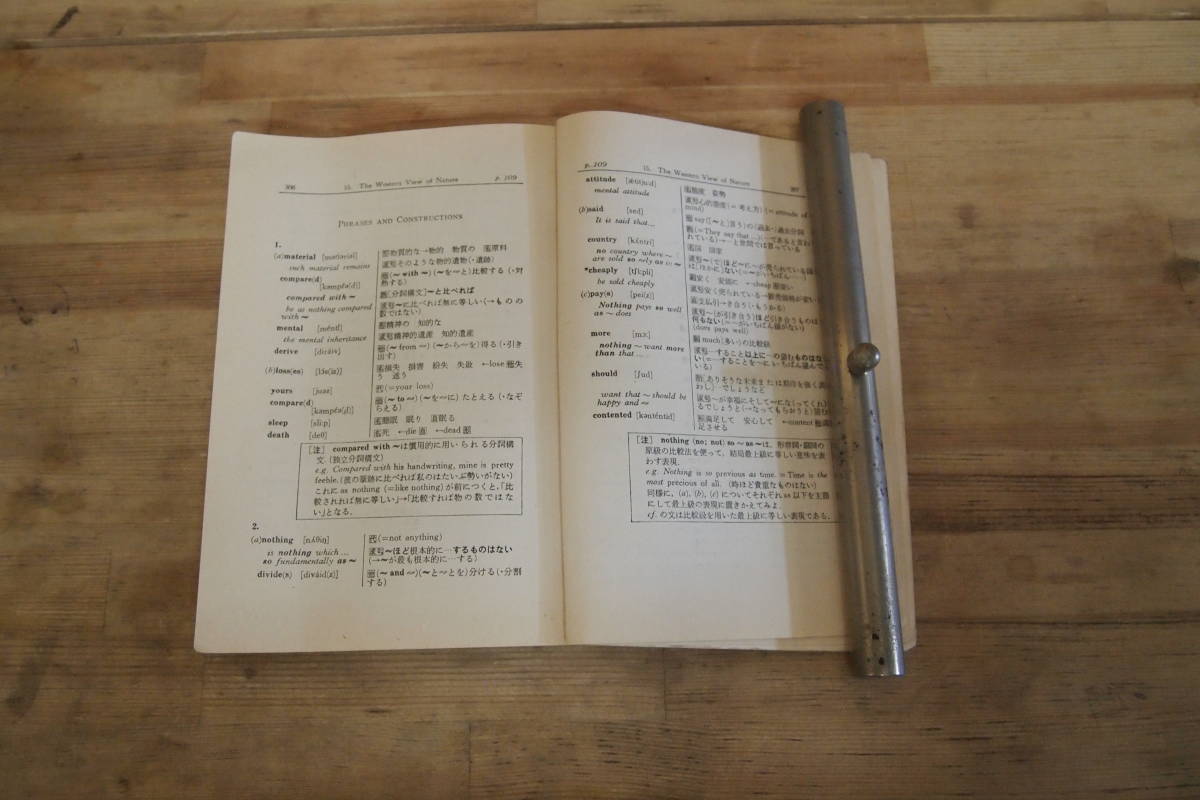 306 15. The Western View of Nature p. 109
PHRASES AND CONSTRUCTIONS
1.
(a)material 物質的な→物的 物質の 原料
such material remains そのような物的遺物(・遺跡)
compare(d) (~ with ~) (~を~と)比較する(・対
[kəmpɛ́ə(d)] 照する)
compared with ~ [分詞構文]~と比べれば
be as nothing compared ~に比べれば無に等しい(→ものの
with ~ 数ではない)
mental [méntl] 精神の 知的な
the mental inheritance 精神的遺産 知的遺産
derive [diráiv] (~ from ~) (~から~を)得る(・引き
出す)
(b)loss(es) 損失 損害 紛失 失敗 ←lose 失
う
yours (=your loss)
compare(d) (~ to ~) (~を~に)たとえる(・なぞ
らえる)
sleep [sli:p] 睡眠 眠り 眠る
death [deθ] 死 ←die ←dead
[注] compared with ~は慣用的に用いられる分詞構
文.(独立分詞構文)
e.g. Compared with his handwriting, mine is pretty
feeble. (彼の筆跡に比べれば私のはたいぶ勢いがない)
これに as nothing (=like nothing) が前につくと,「比
較されれば無に等しい」→「比較すれば物の数ではな
い」となる.
2.
(a)nothing [nʌ́θiŋ] (=not anything)
is nothing which... ~ほど根本的に…するものはない
so fundamentally as ~ (→~が最も根本的に…する)
divide(s) [diváid(z)] (~ and ~) (~と~とを)分ける(・分割
する)
p. 109 15. The Western View of Nature
attitude 態度 姿勢
mental attitude 心的態度(=考え方) (=attitude of
mind)
(b)said [sed] say([~と]言う)の(過去・)過去分詞
It is said that... (=They say that ...) …であると言わ
れている)→…と世間では言っている
country [kʌ́ntri] 国 国家
no country where ~
are sold so ~ly as in ~
*cheaply [tʃí:pli] 安く 安価に ←cheap 安い
be sold cheaply 安く売られている
(c)pay(s) [pei(z)] 支払う→引き合う(・もうかる)
Nothing pays so well ~(が引き合う)ほど引き合うものは
as ~ does 何もない
(does pays well)
more [mɔ:] much(多い)の比較級
nothing ~ want more …すること以上に…の望むものはな
than that ... い
should [ʃud]
want that ~ should be ~が幸福にそして~になってくれ
happy and ~
contented [kənténtid] 満足して 安心して ←content
足させる
[注] nothing (no; not) so ~ as ~は,
原級の比較法を使って,結局最上級に等しい意味を表
わす表現.
e.g. Nothing is so previous as time. = Time is the
most precious of all. (時ほど貴重なものはない)
同様に, (a), (b), (c) についてそれぞれ as 以下を主語
にして最上級の表現に置きかえてみよ.
cf. の文は比較級を用いた最上級に等しい表現である.